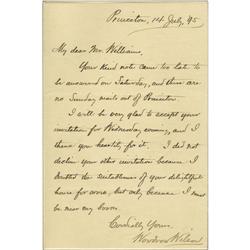 Princeton, 14 July, 95
My dear Mr. Williams,
Your kind note came too late to
be answered on Saturday, and there are
no Sunday mails out of Princeton.
I will be very glad to accept your
invitation for Wednesday evening, and I
thank you heartily for it. I do not
decline your other invitation because I
doubted the suitableness of your delightful
house for work, but only because I must
be near my books.
Cordially Yours,
Woodrow Wilson